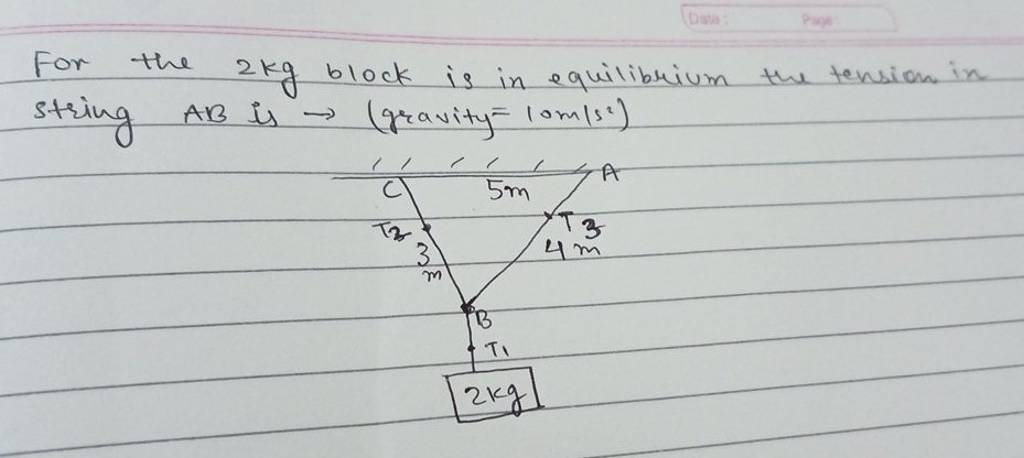 Date: Page:
For the 2kg block is in equilibrium the tension in
string AB is → (gravity = 10m/s²)
C 5m A
T2 T3
3 4 m
m
B
T1
2kg